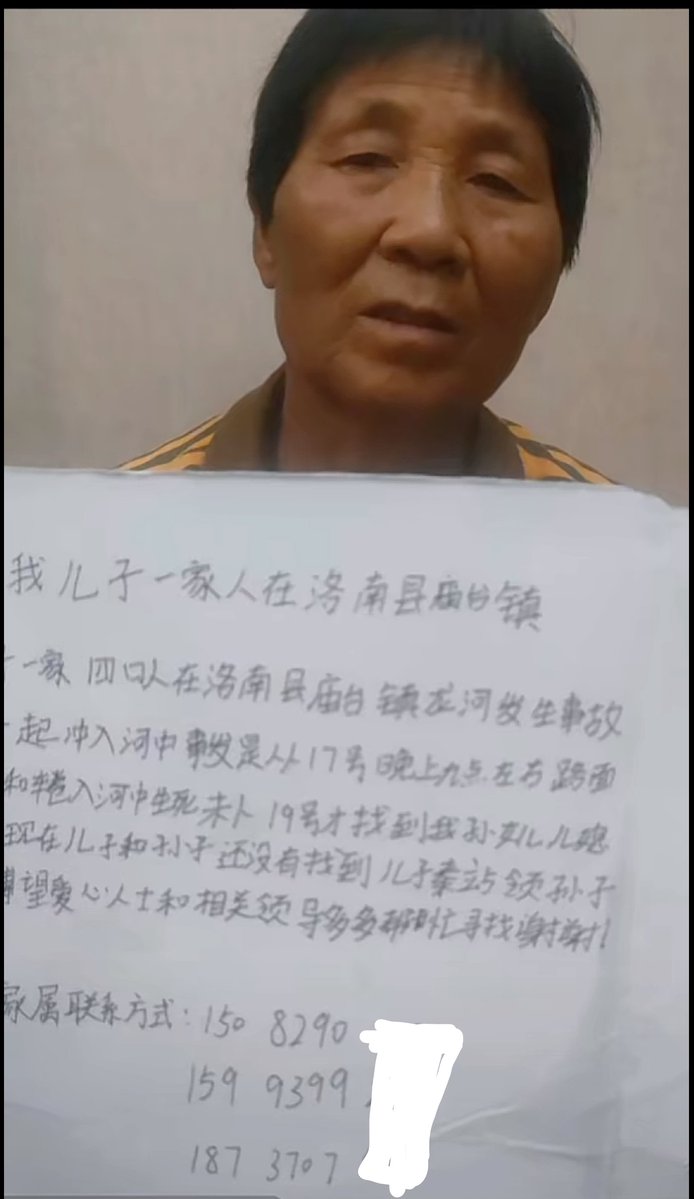 我儿子一家人在洛南县庙台镇
一家四口人在洛南县庙台镇龙河发生事故
一起冲入河中事发是从17号晚上九点左右路面
和车卷入河中生死未卜 19号才找到我孙女儿儿媳
现在儿子和孙子还没有找到儿子秦站领孙子
望爱心人士和相关领导多多帮忙寻找谢谢!
家属联系方式:150 8290
159 9399
187 3707